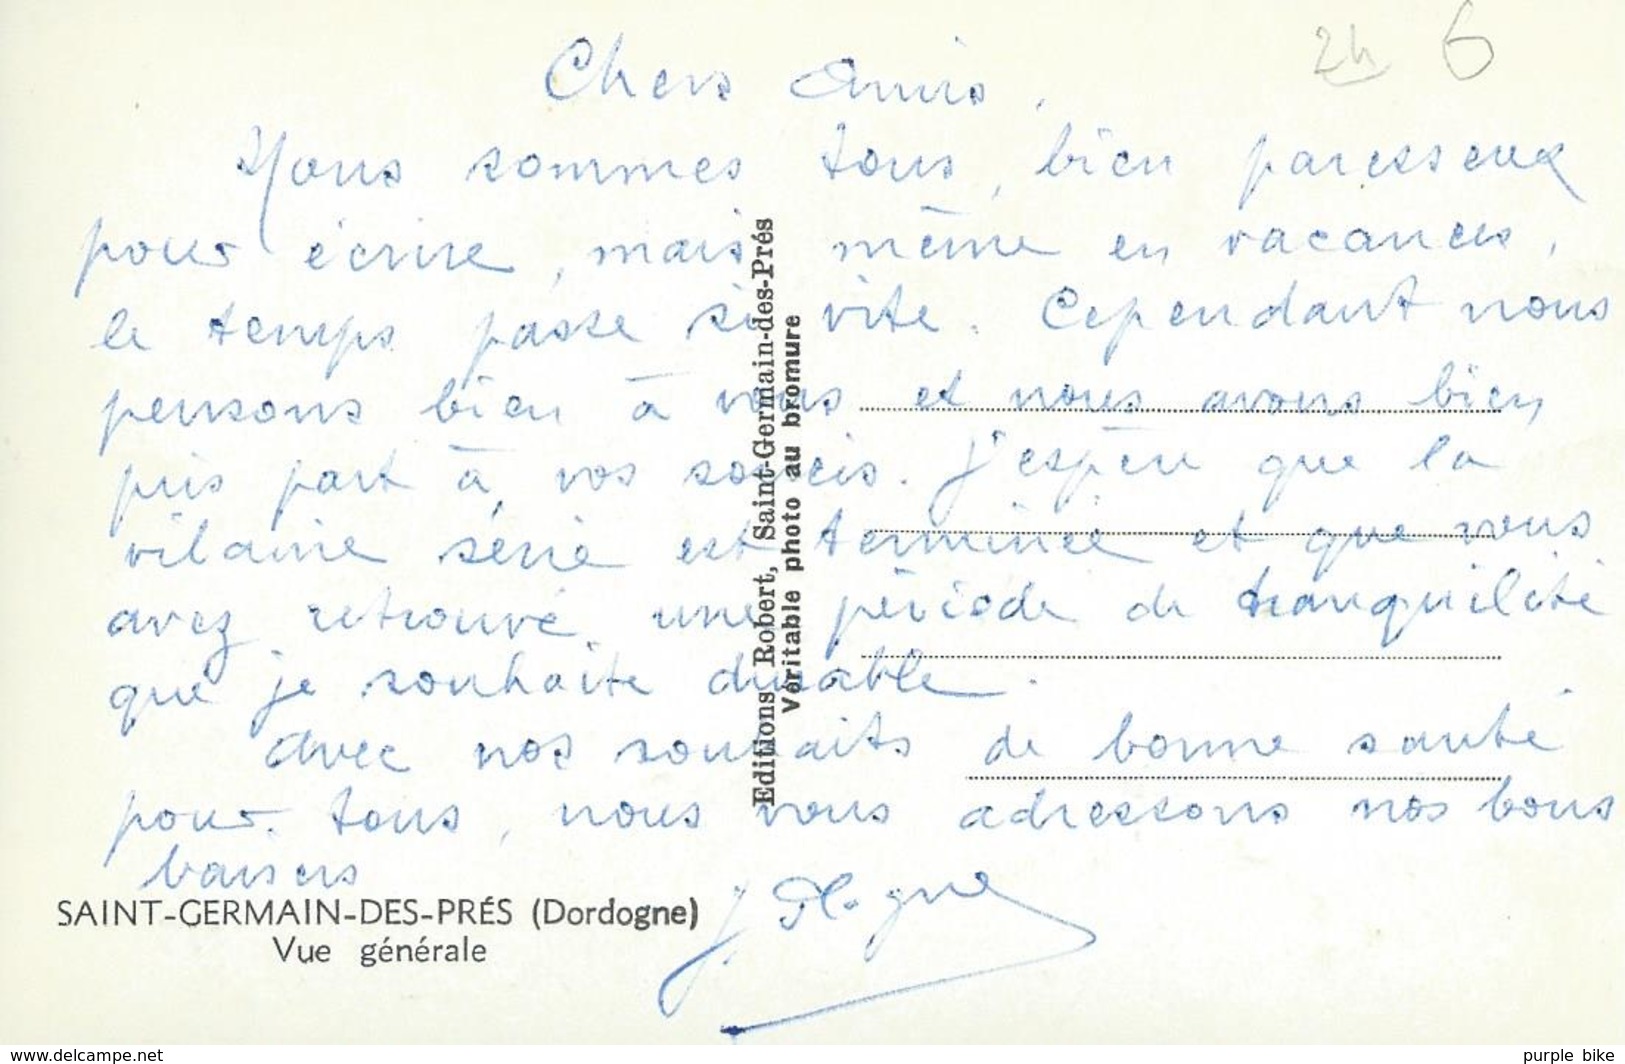 24 6
Chers Amis,
Nous sommes tous, bien paresseux
pour écrire, mais même en vacances,
le temps passe si vite. Cependant nous
pensons bien à vous et nous avons bien
pris part à vos soucis. J'espère que la
vilaine série est terminée et que vous
avez retrouvé une période de tranquilité
que je souhaite durable.
Avec nos souhaits de bonne santé
pour tous, nous vous adressons nos bons
baisers
Editions Robert, Saint-Germain-des-Prés
Véritable photo au bromure
SAINT-GERMAIN-DES-PRÉS (Dordogne)
Vue générale
www.delcampe.net
purple bike